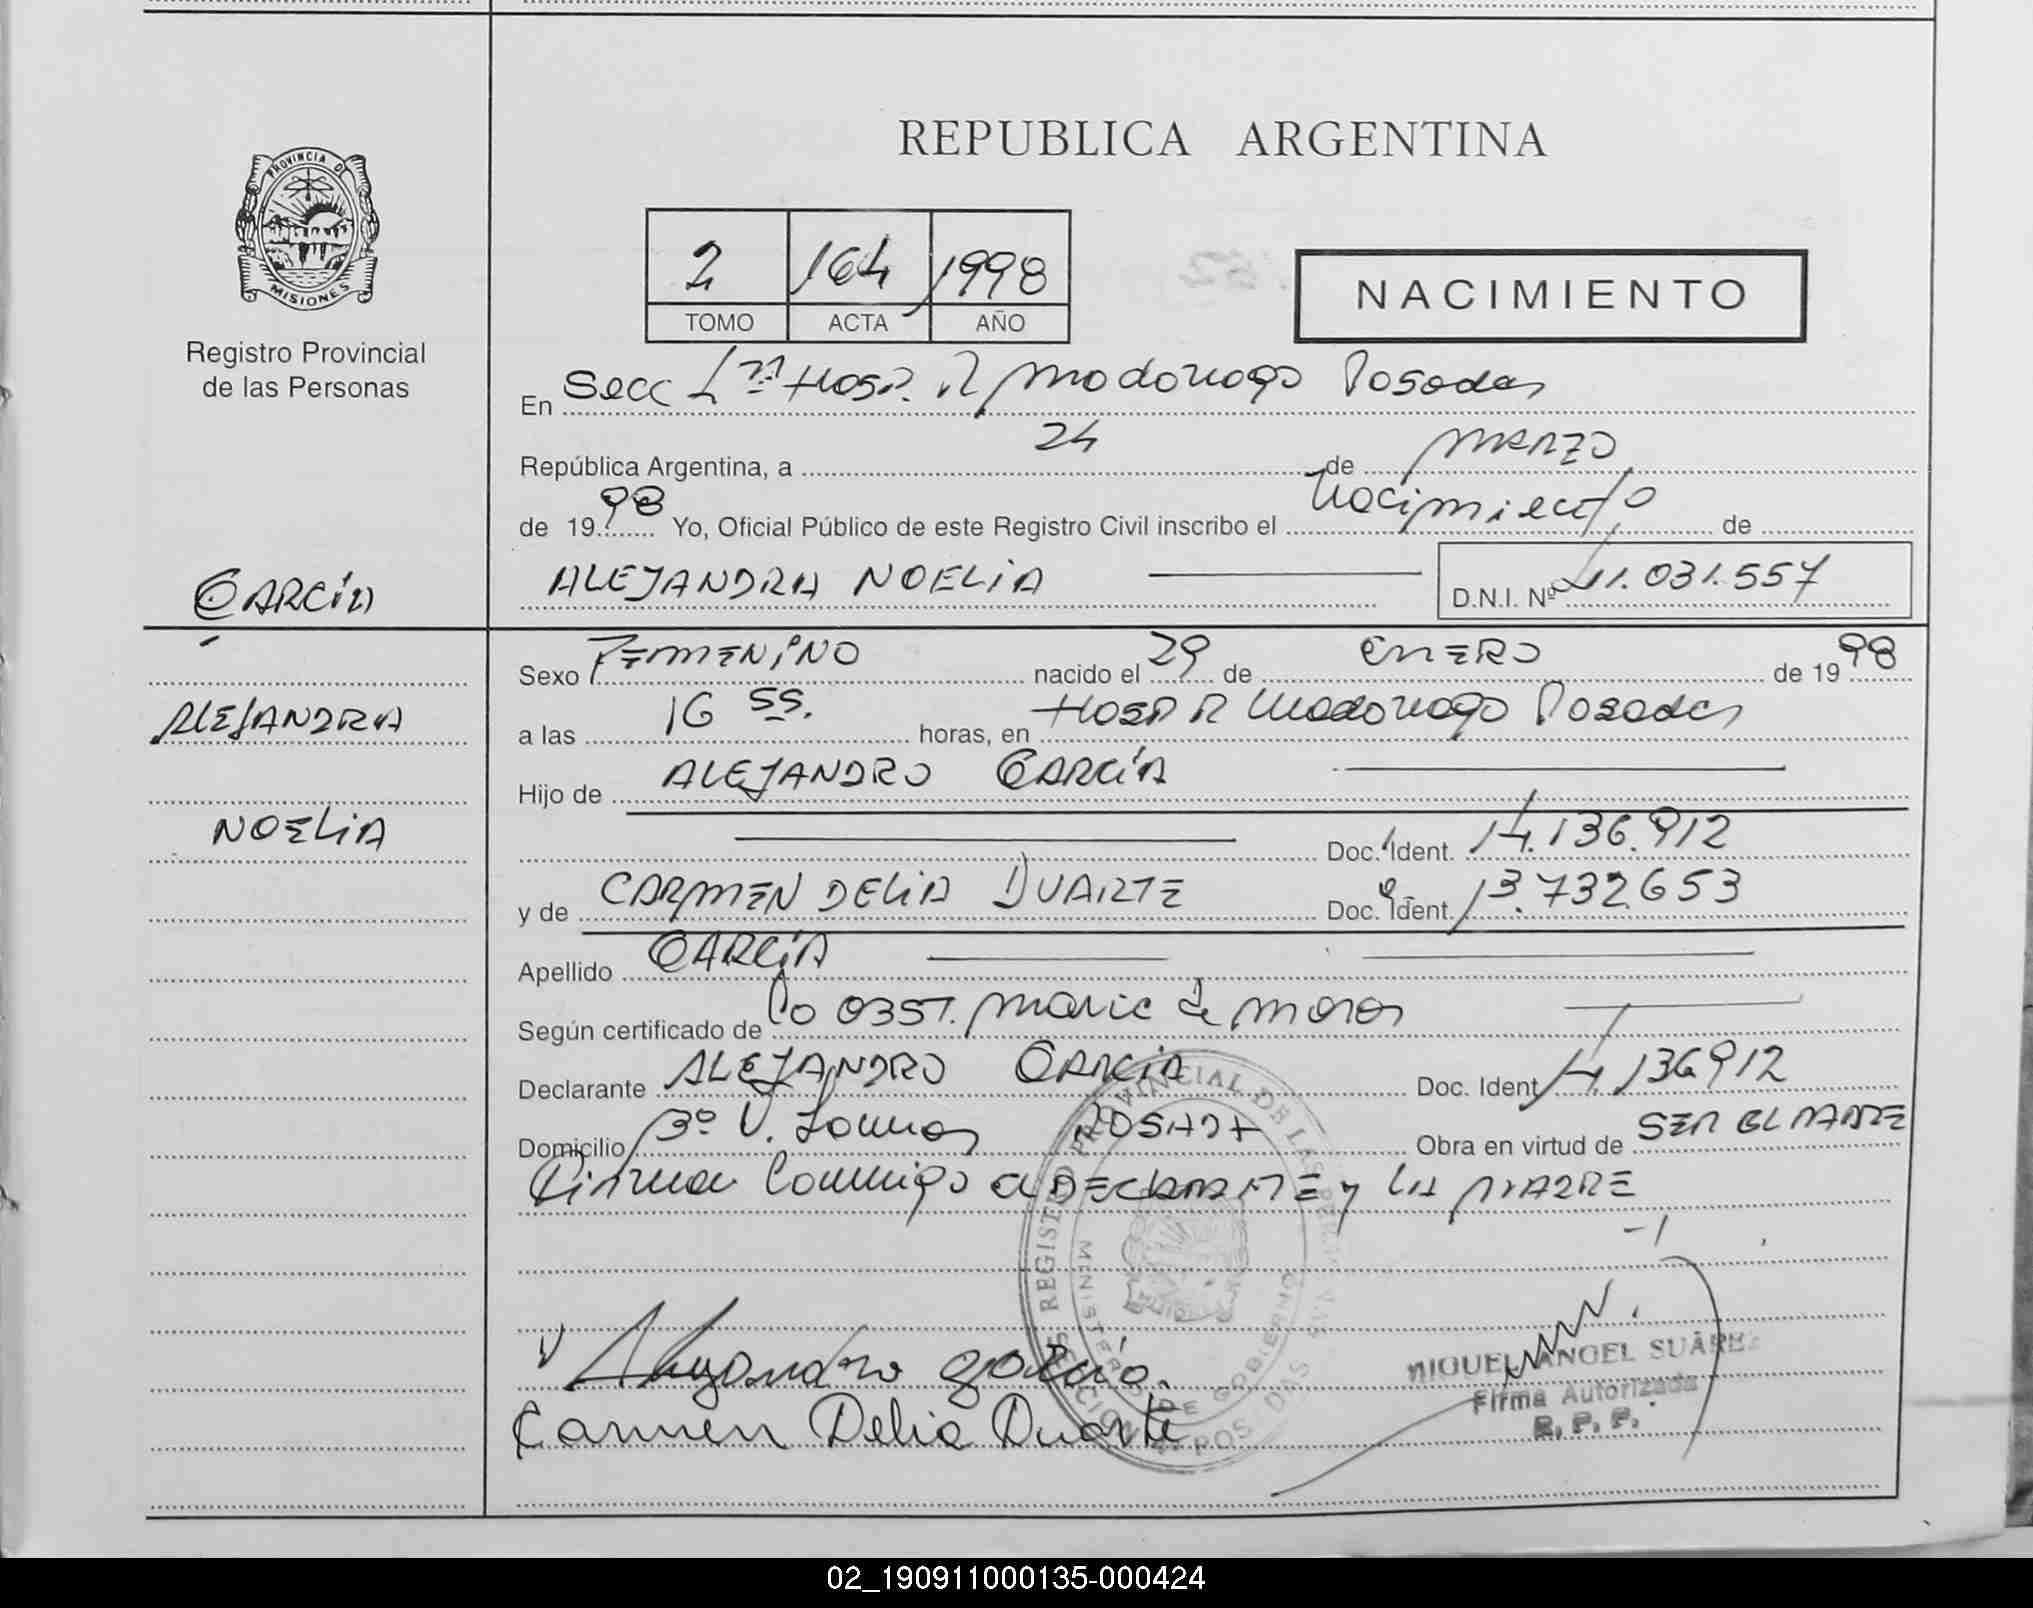 PROVINCIA DE
MISIONES
Registro Provincial
de las Personas
GARCÍA
ALEJANDRA
NOELIA
REPUBLICA ARGENTINA
2 164 1998
TOMO ACTA AÑO
NACIMIENTO
En Secc 1ra Hosp. R Madariaga Posadas
República Argentina, a 24 de MARZO
de 1998 Yo, Oficial Público de este Registro Civil inscribo el Nacimiento de
ALEJANDRA NOELIA D.N.I. Nº 41.031.557
Sexo FEMENINO nacido el 29 de ENERO de 1998
a las 16 55. horas, en Hosp R Madariaga Posadas
Hijo de ALEJANDRO GARCÍA
Doc. Ident. 14.136.912
y de CARMEN DELIA DUARTE Doc. Ident. 13.732.653
Apellido GARCÍA
Según certificado de La Obst. Maria de
Declarante ALEJANDRO GARCIA Doc. Ident 14.136912
Domicilio POSADA Obra en virtud de SER EL PADRE
Firma Conmigo el DECLARANTE y LA MADRE
REGISTRO PROVINCIAL DE LAS PERSONAS
MINISTERIO DE GOBIERNO
Alejandro garcia.
Carmen Delia Duarte
MIGUEL ANGEL SUÁREZ
Firma Autorizada
R. P. P.
02_190911000135-000424